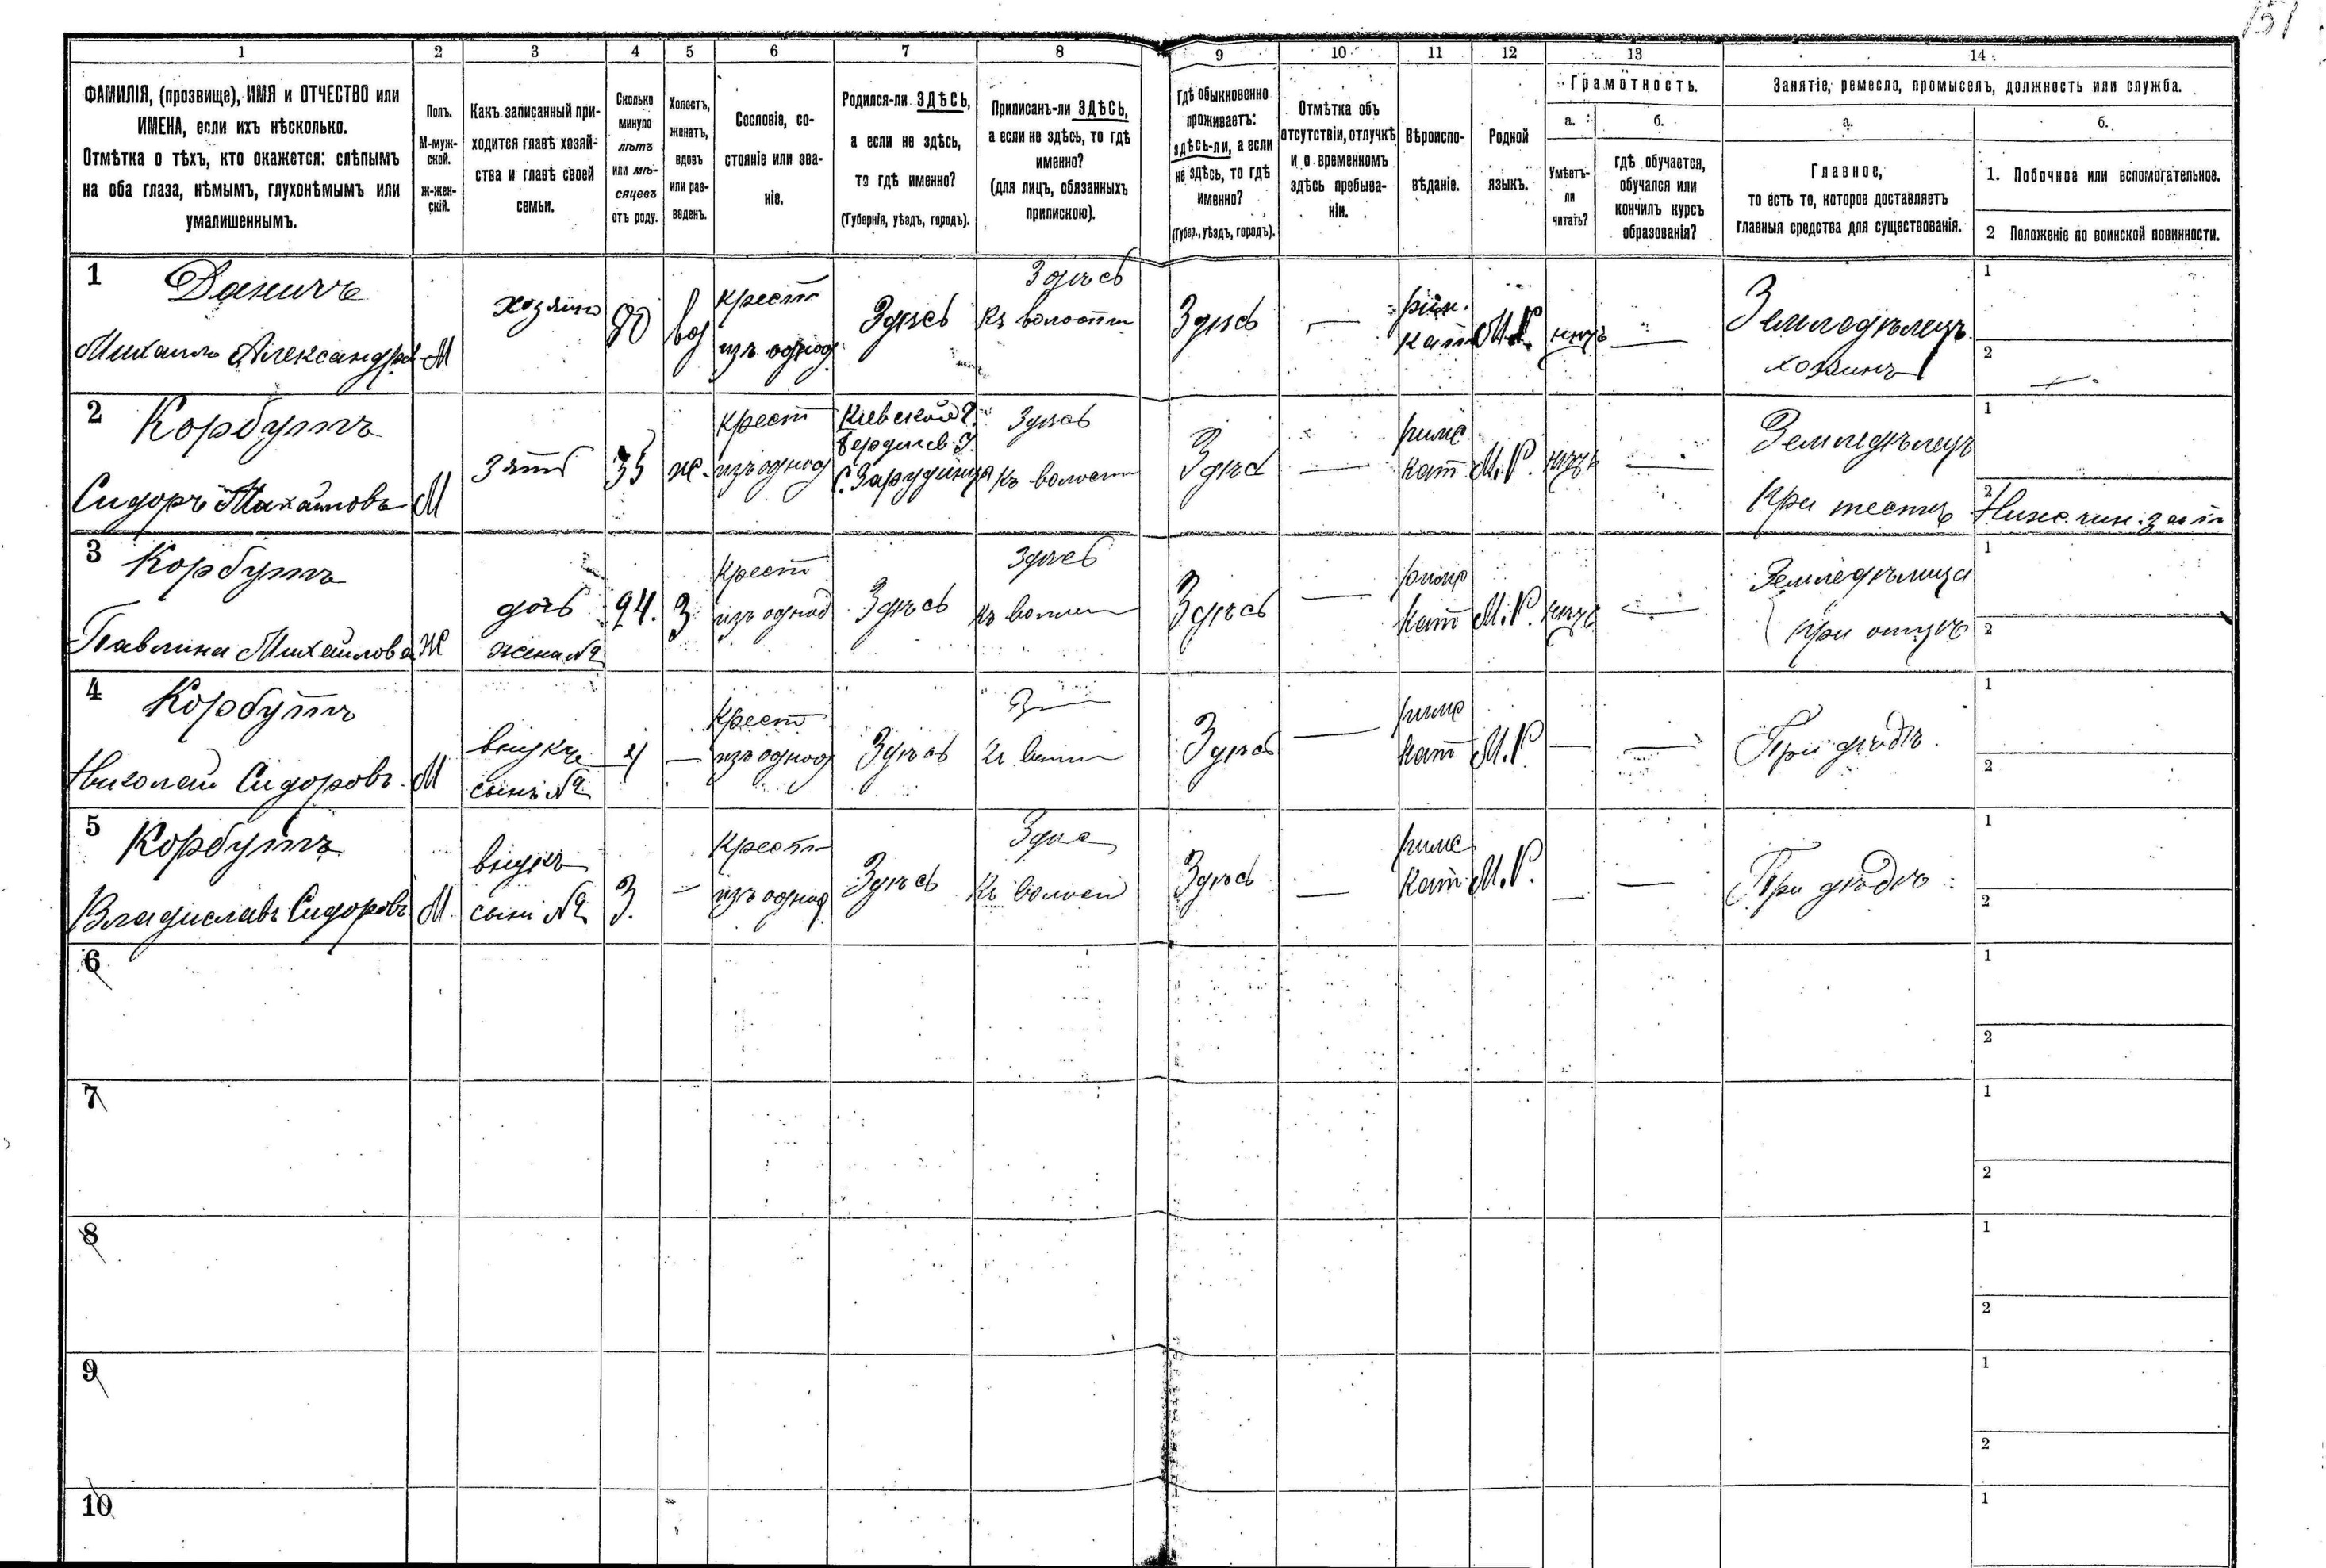 151
1 2 3 4 5 6 7 8 9 10 11 12 13 14
ФАМИЛІЯ, (прозвище), ИМЯ и ОТЧЕСТВО или
ИМЕНА, если ихъ нѣсколько.
Отмѣтка о тѣхъ, кто окажется: слѣпымъ
на оба глаза, нѣмымъ, глухонѣмымъ или
умалишеннымъ.
Полъ.
М-муж-
ской.
ж-жен-
скій.
Какъ записанный при-
ходится главѣ хозяй-
ства и главѣ своей
семьи.
Сколько
минуло
лѣтъ
или мѣ-
сяцевъ
отъ роду.
Холостъ,
женатъ,
вдовъ
или раз-
веденъ.
Сословіе, со-
стояніе или зва-
ніе.
Родился-ли ЗДѢСЬ,
а если не здѣсь,
то гдѣ именно?
(Губернія, уѣздъ, городъ).
Приписанъ-ли ЗДѢСЬ,
а если не здѣсь, то гдѣ
именно?
(для лицъ, обязанныхъ
припискою).
Гдѣ обыкновенно
проживаетъ:
здѣсь-ли, а если
не здѣсь, то гдѣ
именно?
(Губер., уѣздъ, городъ).
Отмѣтка объ
отсутствіи, отлучкѣ
и о временномъ
здѣсь пребыва-
ніи.
Вѣроиспо-
вѣданіе.
Родной
языкъ.
Грамотность.
а.
Умѣетъ-
ли
читать?
б.
гдѣ обучается,
обучался или
кончилъ курсъ
образованія?
Занятіе, ремесло, промыселъ, должность или служба.
а.
Главное,
то есть то, которое доставляетъ
главныя средства для существованія.
б.
1. Побочное или вспомогательное.
2 Положеніе по воинской повинности.
1
Михаилъ Александров
М
хозяинъ
80
вд
крест
изъ однод
Здѣсь
Здѣсь
къ волости
Здѣсь
—
рим.
кат
М.Р.
нѣтъ
—
Земледѣлецъ
хозяинъ
1
2
—
2 Корбутъ
Сидоръ Михаиловъ
М
Зять
35
ж.
крест
изъ однод
Кіевской г.
Бердичев. у.
с. Зарудинцы
Здѣсь
къ волости
Здѣсь
—
римс
кат
М.Р.
нѣтъ
—
Земледѣлецъ
при тестѣ
1
2 Нижн. чин. зап
3 Корбутъ
Павлина Михаилова
Ж
дочь
жена №2
24.
З
Крест
изъ однод
Здѣсь
Здѣсь
къ волости
Здѣсь
—
римс
кат
М.Р.
нѣтъ
—
Земледѣлица
при отцѣ
1
2
4 Корбутъ
Николай Сидоровъ
М
внукъ
сынъ №2
4
—
Крест
изъ однод
Здѣсь
Здѣсь
къ волости
Здѣсь
—
римс
кат
М.Р
—
—
При дѣдѣ.
1
2
5 Корбутъ
Владиславъ Сидоровъ
М.
внукъ
сынъ №2
3.
—
Крест
изъ однод
Здѣсь
Здѣсь
къ волости
Здѣсь
—
римс
кат
М.Р.
—
—
При дѣдѣ
1
2
6
1
2
7
1
2
8
1
2
9
1
2
10
1